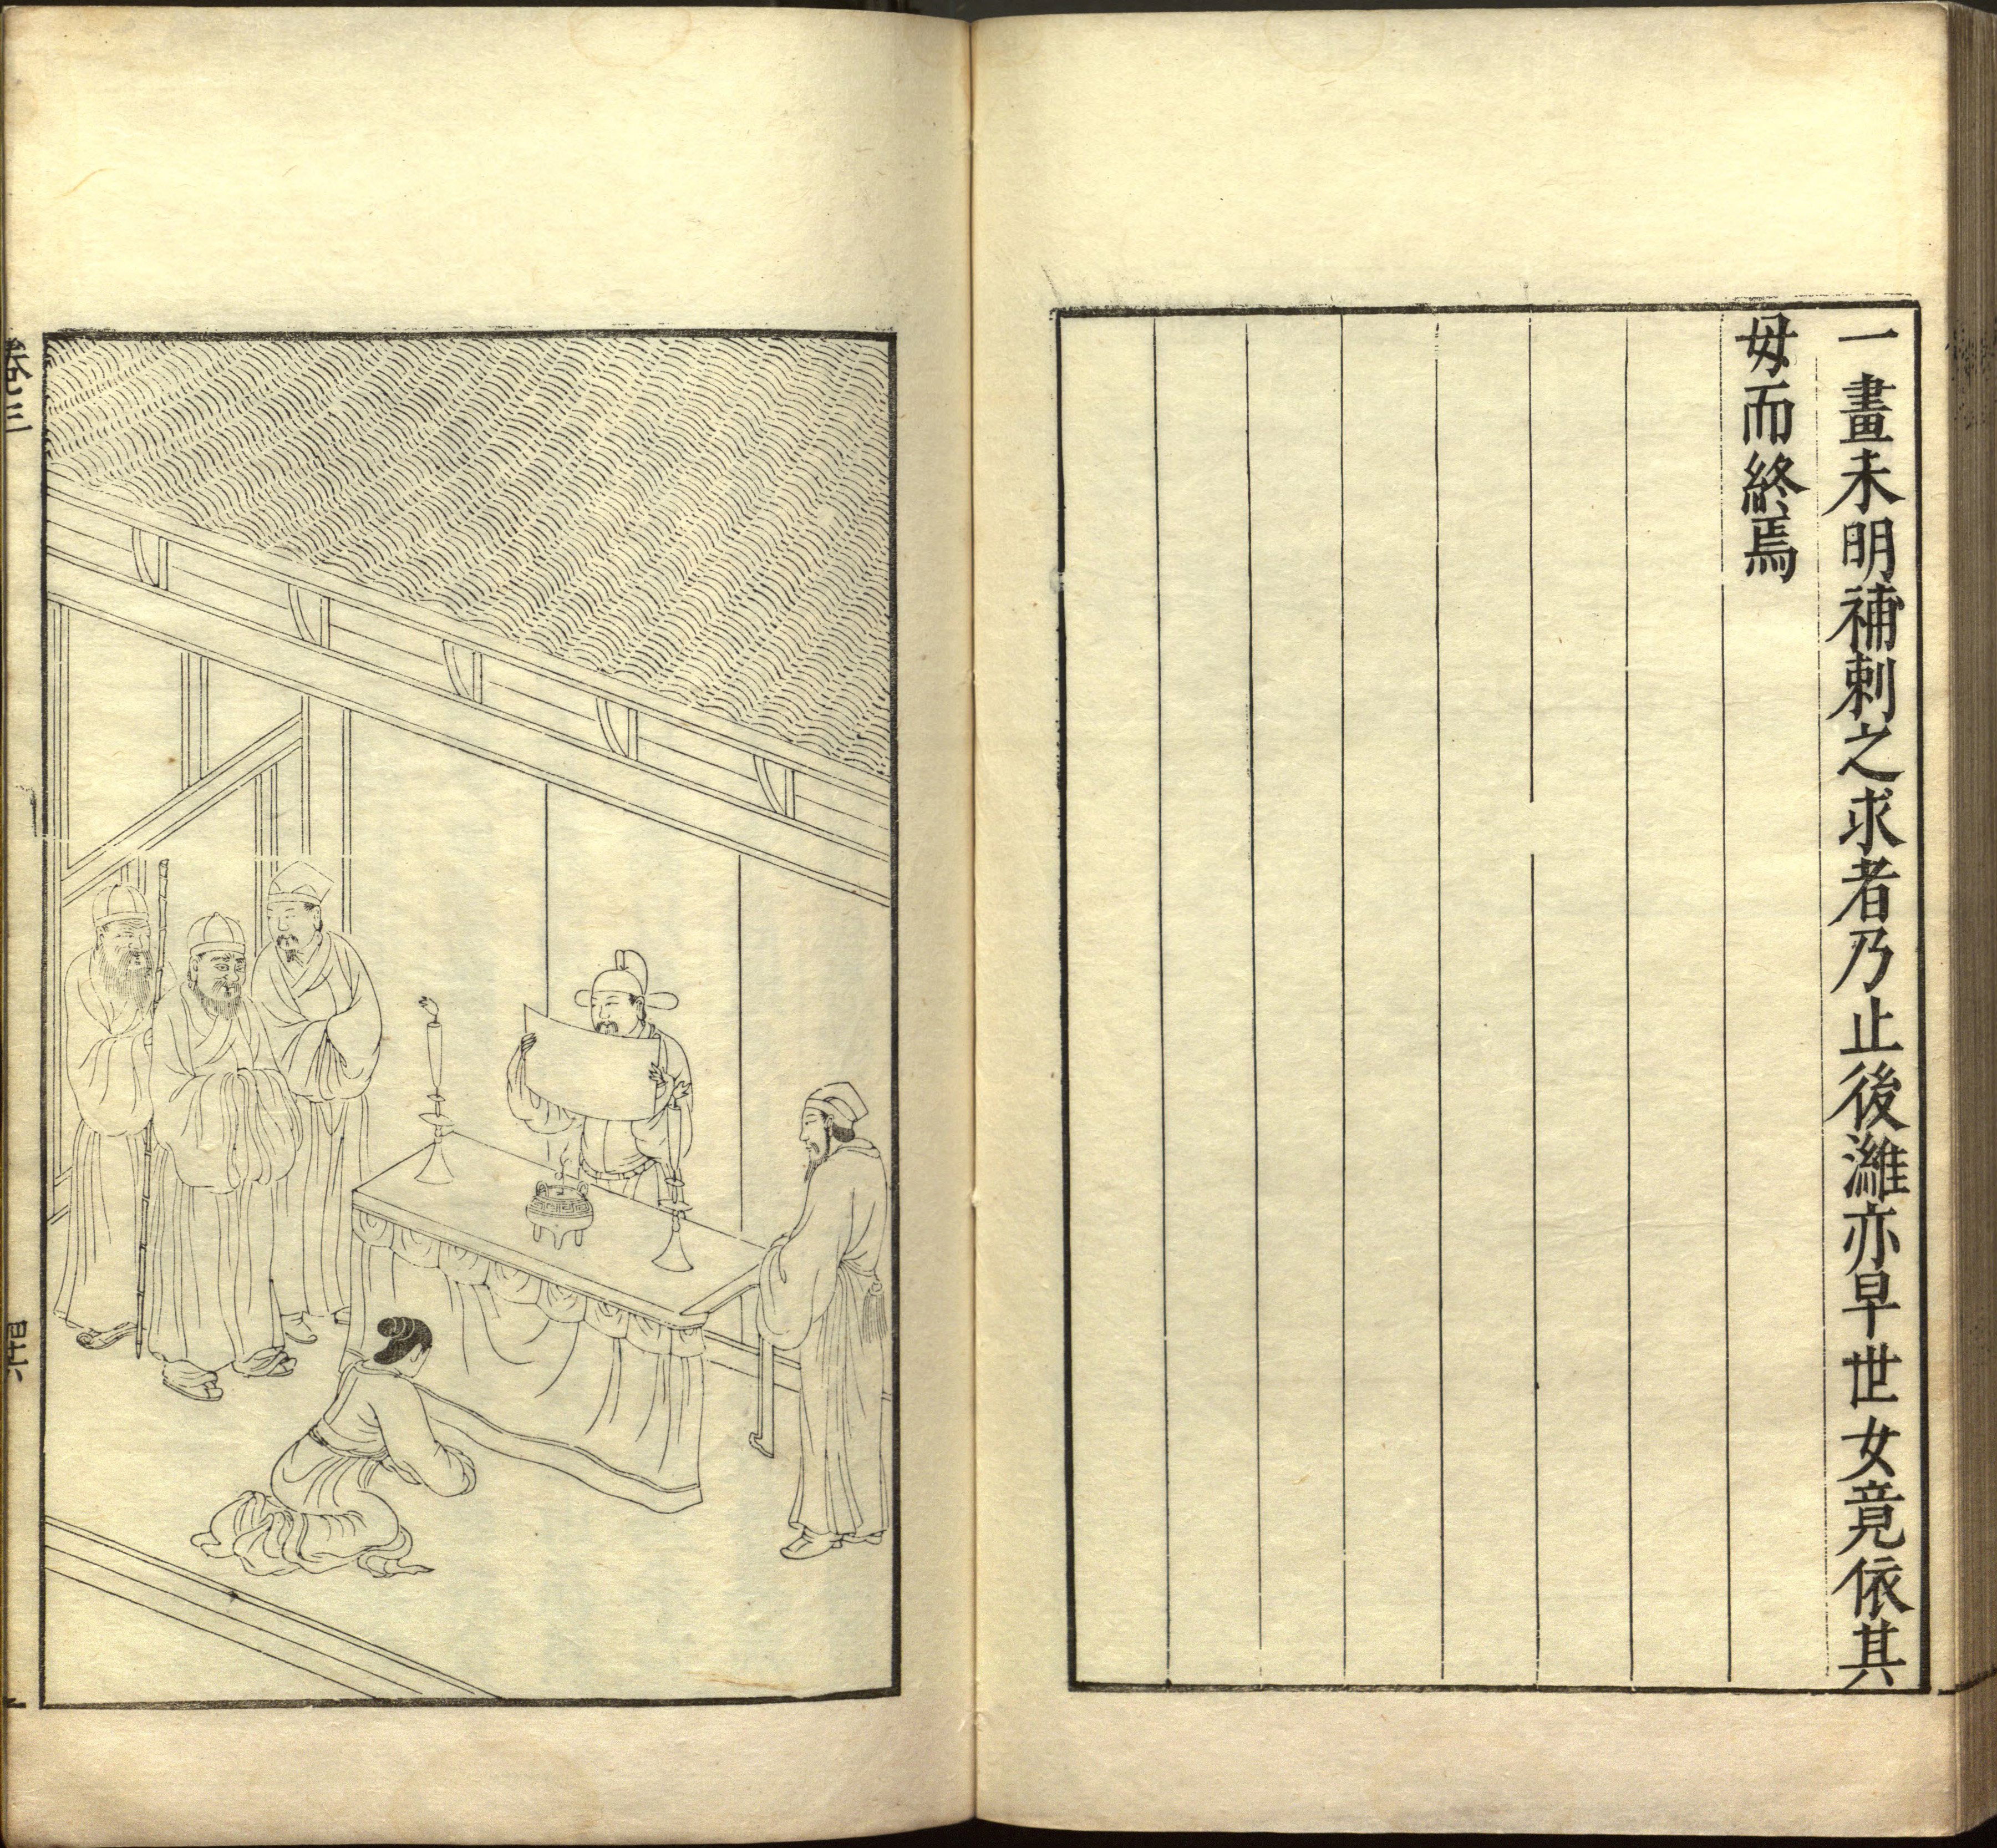 一畫未明補刺之求者乃止後濰亦早世女竟依其
母而終焉
卷三
四十六